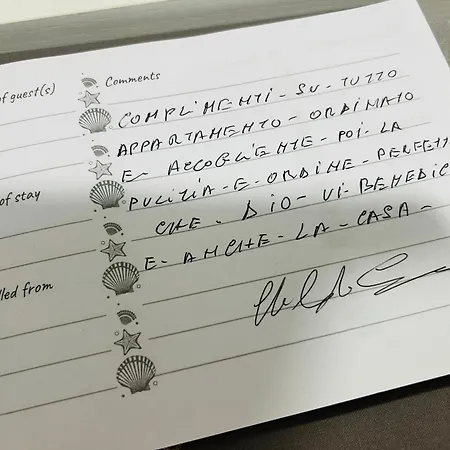 of guest(s)
Comments
COMPLIMENTI - SU - TUTTO
APPARTAMENTO - ORDINATO
E - ACCOGLIENTE - POI - LA
of stay
PULIZIA - E - ORDINE - PERFETT
CHE - DIO - VI - BENEDIC
E - ANCHE - LA - CASA -
lled from